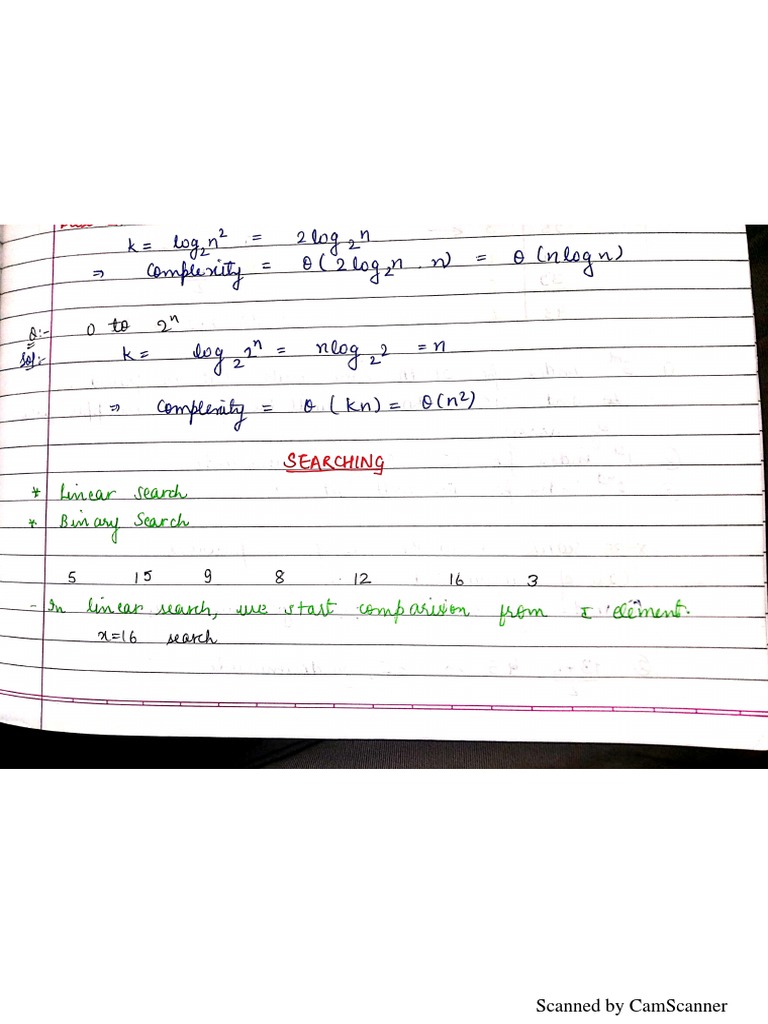 k = log₂n² = 2log₂n
⇒ Complexity = θ(2log₂n . n) = θ(nlogn)
Q:- 0 to 2ⁿ
Sol:- k = log₂2ⁿ = nlog₂2 = n
⇒ Complexity = θ(kn) = θ(n²)
SEARCHING
* Linear search
* Binary Search
5 15 9 8 12 16 3
- In linear search, we start comparision from I element.
x=16 search
Scanned by CamScanner